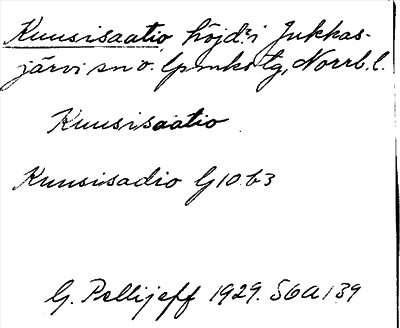 Kuusisaatio, höjd: i Jukkas-
järvi sn o. lpmks tg, Norrb. l.
Kuusisaatio
Kuusisadio G10 b3
G. Pellijeff 1929. S6A139